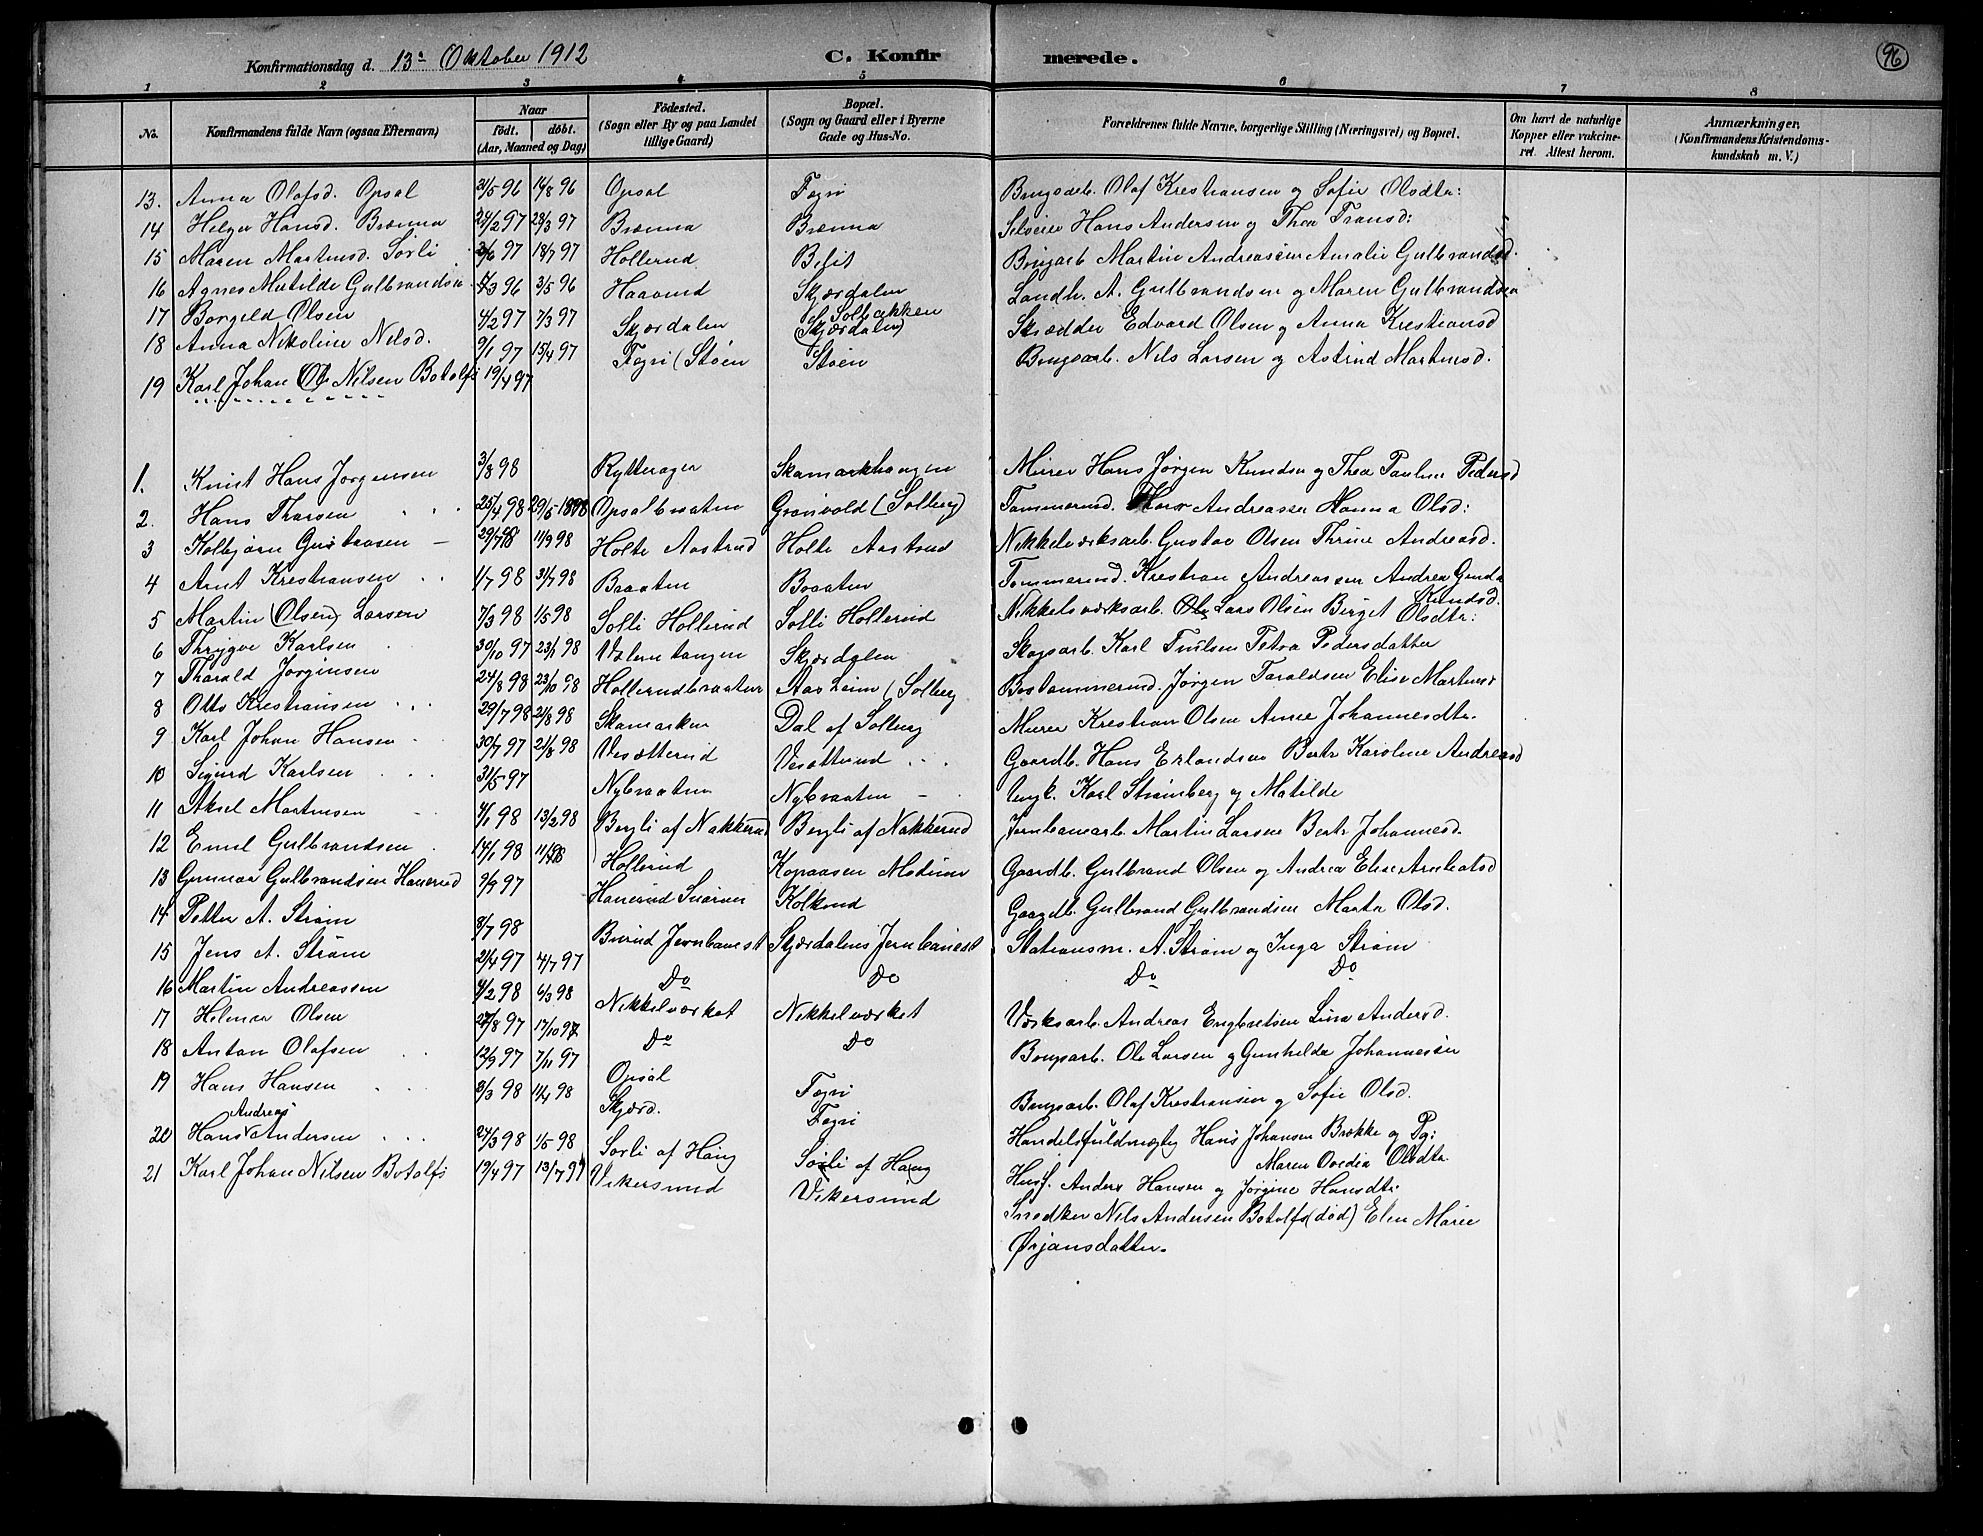 Konfirmationsdag d. 13de Oktober 1912 C. Konfirmerede. 96
1 2 3 4 5 6 7 8
No. Konfirmandens fulde Navn (ogsaa Efternavn) Naar født. døbt. (Aar, Maaned og Dag) Fødested. (Sogn eller By og paa Landet tillige Gaard) Bopæl. (Sogn og Gaard eller i Byerne Gade og Hus-No. Forældrenes fulde Navne, borgerlige Stilling (Næringsvei) og Bopæl. Om havt de naturlige Kopper eller vaccineret. Attest herom. Anmærkninger, (Konfirmandens Kristendomskundskab m. V.)
13. Anna Olafsd. Opsal 21/5 96 16/8 96 Opsal Fegri Brugsarb. Olaf Krestiansen og Sofie Olsdtr:
14 Helga Hansd. Brænna 24/2 97 28/3 97 Brænna Brænna Selveier Hans Andersen og Thea Fransd:
15 Maren Martinsd. Sørli 2/6 97 18/7 97 Hollerud Besit Brugarb Martin Andreassen Amalie Gulbrandsd.
16 Agnes Matilde Gulbrandsen 3/5 96 Haaverud Skjærdalen Landh. A. Gulbrandsen og Maren Gulbrandsen
17 Borgeld Olsen 4/2 97 7/3 97 Skjærdalen Solbakken (Skjærdalen) Skrædder Edvard Olsen og Anna Krestiansd
18 Anna Nikoline Nilsd. 9/1 97 15/4 97 Fegri (Støen Støen Brugsarb. Nils Larsen og Astrid Martinsd.
19 Karl Johan Nilsen Botolfs 19/4 97
1. Knut Hans Jørgensen 3/8 98 Rytterager Skamarkhaugen Murer Hans Jørgen Knudsen og Thea Pauline Pedersd
2. Hans Thorsen 25/4 98 29/5 1898 Opsalbraaten Grønvold (Solberg) Tømmermd. Thor Andreassen Hanna Olsd:
3 Kolbjørn Gustavsen 29/7 98 11/9 98 Holte Aastrud Holte Aastrud Nikkelværksarb. Gustav Olsen Thrine Andreasd.
4 Arnt Krestiansen 1/7 98 31/7 98 Braaten Braaten Tømmermd. Krestian Andreassen Andrea Gunda Knudsd.
5 Martin (Olsen) Larsen 7/3 98 1/5 98 Solli Hollerud Solli Hollerud Nikkelsværksarb. Lars Olsen Berget Olsdtr:
6 Thrygve Karlsen 30/10 97 23/1 98 Vælentangen Skjærdalen Skogsarb. Karl Trulsen Petra Pedersdatter
7 Tharald Jørginsen 24/8 98 23/10 98 Hollerudbraaten Aasheim (Solberg Jørgen Taraldsen Elise Martinsd
8 Otto Krestiansen 29/7 98 21/8 98 Skamarken Dal af Solberg Murer Krestian Olsen Anne Johannesdtr.
9 Karl Johan Hansen 30/7 97 21/8 98 Vesætterud Vesætterud Gaardb. Hans Erlandsen Berte Karoline Andreasd
10 Sigurd Karlsen 31/5 97 Nybraaten Nybraaten Karl Strømberg og Matilde
11 Aksel Martinsen 4/1 98 13/2 98 Bergli af Nakkerud Bergli af Nakkerud Jernbanearb. Martin Larsen Berte Johannesd.
12 Emil Gulbrandsen 14/1 98 Hollerud Kopaasen Modum Gaardb. Gulbrand Olsen og Andrea Elise
13 Gunnar Gulbrandsen Hauerud 9/9 97 Hauerud Snarum Kolkrud Gaardb. Gulbrand Gulbrandsen Marte Olsd.
14 Petter A. Strøm 3/7 98 Burud Jernbanest Skjærdalens Jernbanest Stationsm. A. Strøm og Inga Strøm
15 Jens A. Strøm 21/4 97 4/7 97 Do Do Do Do
16 Martin Andreassen 4/2 98 6/3 98 Nikkelværket Nikkelværket Værksarb. Andreas Engbretsen Lina Andersd.
17 Helmer Olsen 27/8 97 17/10 97 Do Do Brugsarb. Ole Larsen og Gunhilde Johannessen
18 Anton Olafsen 12/9 97 7/11 97 Opsal Fegri Brugsarb. Olaf Krestiansen og Sofie Olsd.
19 Hans Hansen 3/3 98 11/4 98 Skjærd. Fegri Handelsfuldmægtig Hans Johansen Brække og Pg:
Maren Ovedia Olsdtr.
20 Hans Andreas Andersen 27/3 98 1/5 98 Sørli af Haug Sørli af Haug Husf. Anders Hansen og Jørgine Hansdtr.
21 Karl Johan Nilsen Botolfs 19/4 97 13/7 97 Vikersund Vikersund Snedker Nils Andersen Botolfs (død) Elen Marie
Ørjansdatter.